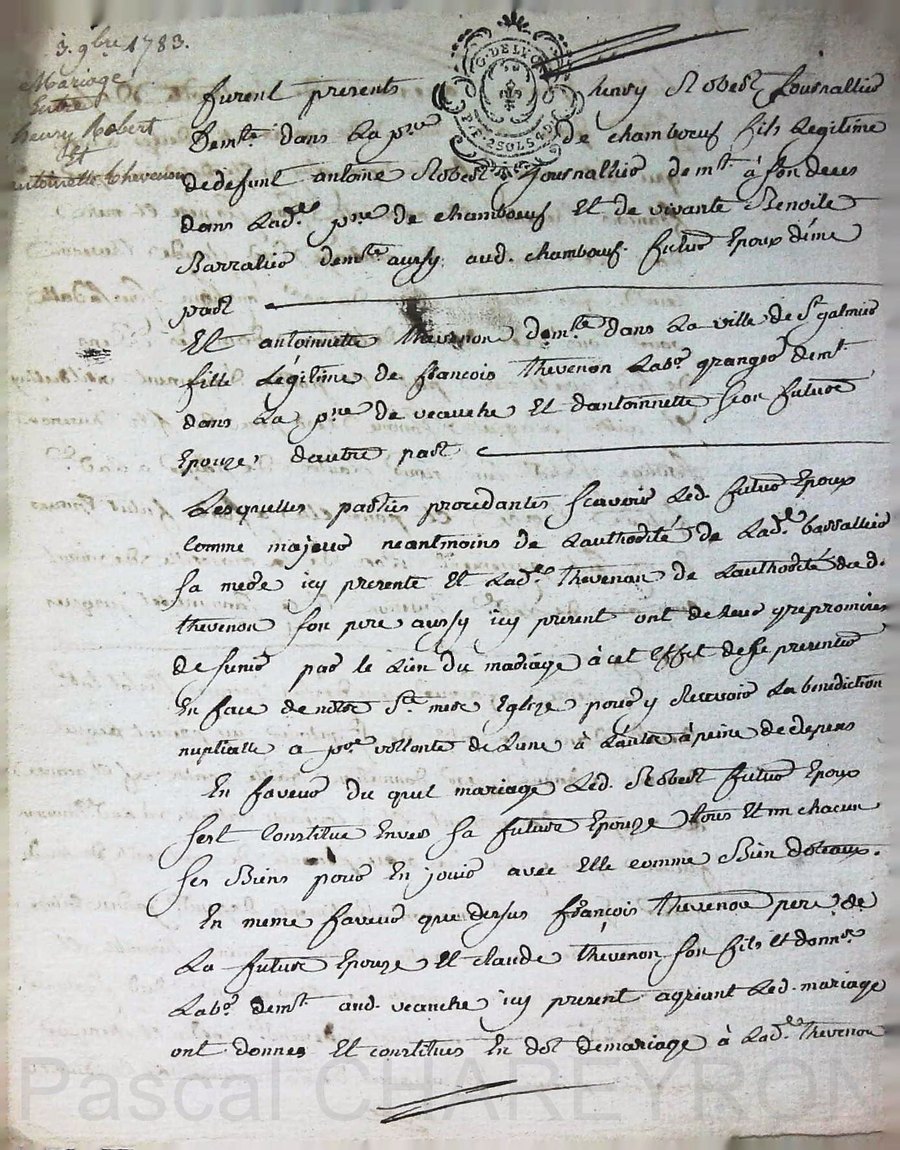 3. 9bre 1783.
Mariage
Entre
henry Robert
Et
antoinette thevenon
G. DE LYON
P. P. 2 SOLS 4 D.
furent presents henry Robert Journallier
demt. dans La psse de chambœuf fils Legitime
de defunt antoine Robert Journallier demt. à son deces
dans Lade. psse de chambœuf Et de vivante Benoite
Barralier demte aussy aud. chambœuf futur Epoux d'une
part
Et antoinnette thevenon demte dans La ville de St galmier
fille Légitime de françois thevenon Labr. granger demt.
dans La psse de veauche Et dantoinnette futture
Epouze, dautre part
Lesquelles parties procedantes scavoir Led. futur Epoux
comme majeur neantmoins de Lauthodité de Lade barrallier
sa mere icy presente Et Lade. thevenon de Lauthodité dud.
thevenon son pere aussy icy present ont de leur gre promises
de sunir par le Lien du mariage à cet Effet de se presenter
En face de notre Ste mere Eglize pour y Recevoir La benediction
nuptialle a pre vollonte de Lune à Lautre à peine de depens
En faveur du quel mariage Led. Robert futur Epoux
sest Constitue Envers sa future Epouze tous Et un chacun
ses Biens pour En jouir avec Elle comme Bien doteaux.
En meme faveur que dessus françois thevenon pere de
La future Epouze Et claude thevenon son fils Et donnre
Labr. demt. aud. veauche icy present agreant Led. mariage
ont donnes Et constitues En dot de mariage à Lade. thevenon
Pascal CHAREYRON